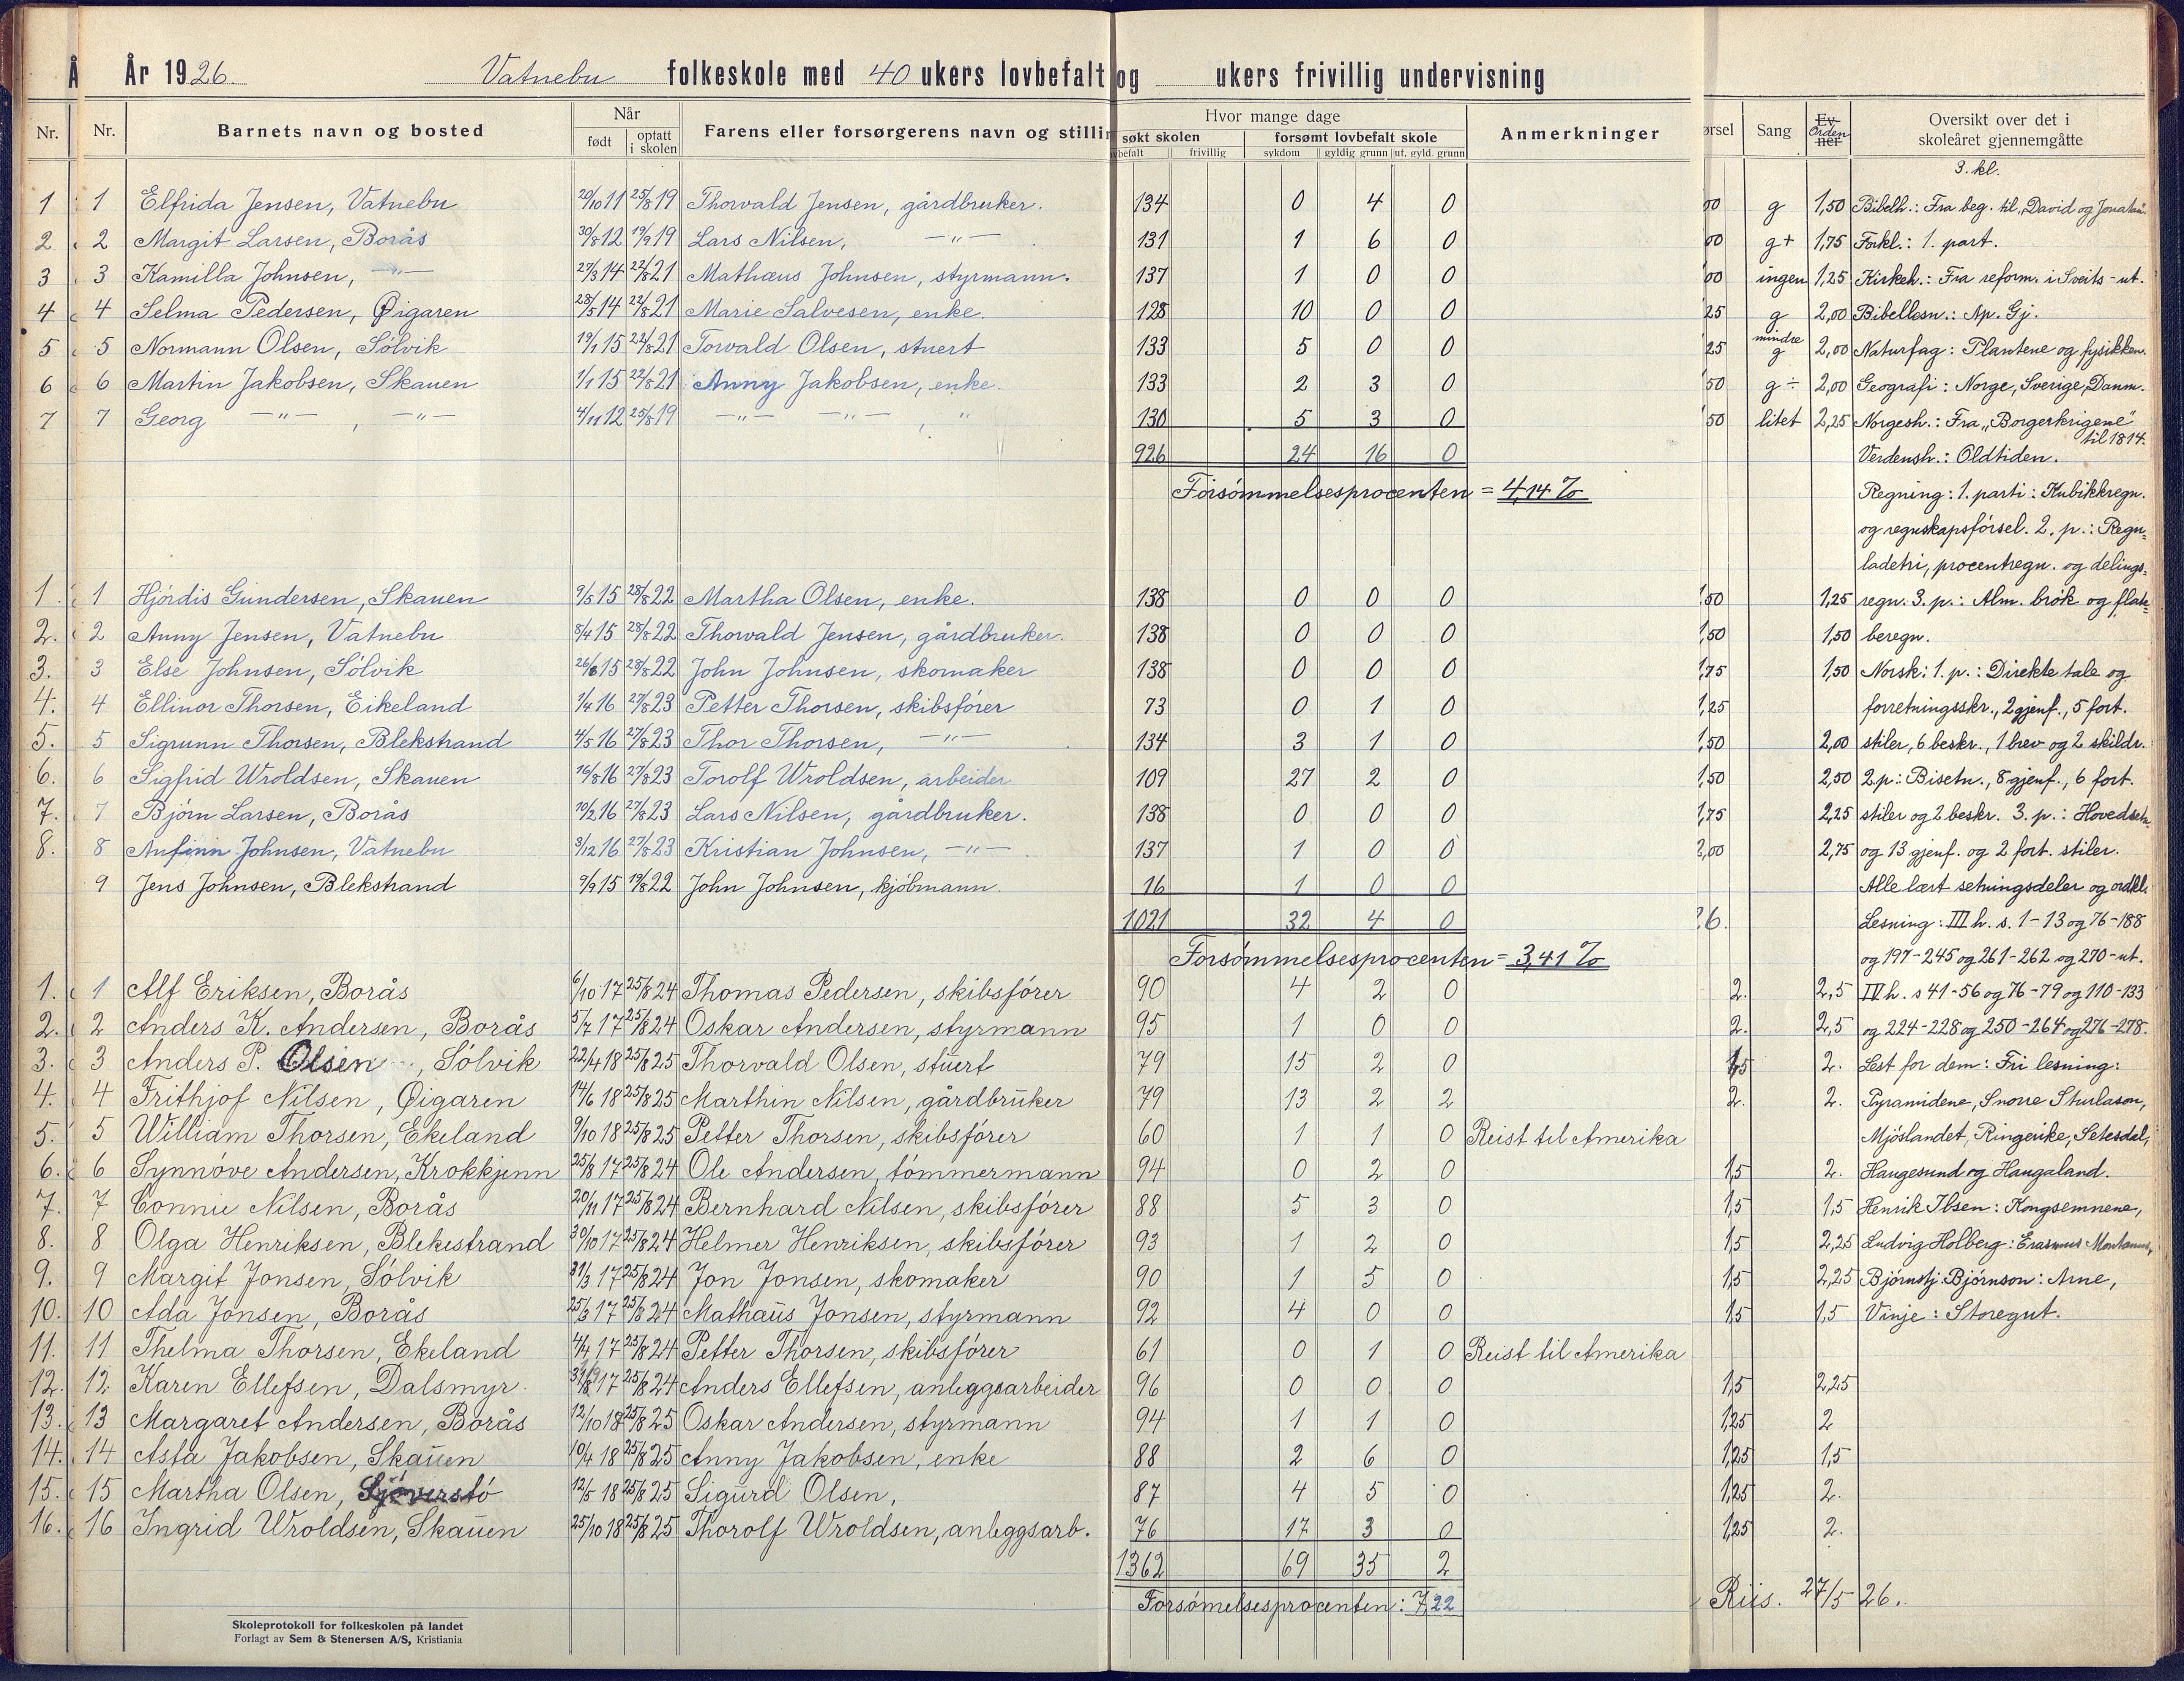 År 1926. Vatnebu folkeskole med 40 ukers lovbefalt og ukers frivillig undervisning
Nr. Nr. Barnets navn og bosted Når født optatt i skolen Farens eller forsørgerens navn og stillin Hvor mange dage søkt skolen forsømt lovbefalt skole Anmerkninger Sang Orden Oversikt over det i skoleåret gjennemgåtte
frivillig sykdom gyldig grunn ut. gyld. grunn
3. kl.
1 1 Elfrida Jensen, Vatnebu 20/10 11 25/8 19 Thorvald Jensen, gårdbruker. 134 0 4 0 g 1,50 Bibelh.: Fra beg. til „David og Jonatan"
2 2 Margit Larsen, Borås 30/8 12 19/9 19 Lars Nilsen, —"— 131 1 6 0 g+ 1,75 Forkl.: 1. part.
3 3 Kamilla Johnsen, —"— 27/3 14 22/8 21 Mathæus Johnsen, styrmann. 137 1 0 0 ingen 1,25 Kirkeh.: Fra reform. i Sveits - ut.
4 4 Selma Pedersen, Øigaren 28/5 14 22/8 21 Marie Salvesen, enke. 128 10 0 0 25 g 2,00 Bibellesn.: Ap. Gj.
5 5 Normann Olsen, Sølvik 19/1 15 22/8 21 Torvald Olsen, stuert 133 5 0 0 25 mindre g 2,00 Naturfag: Plantene og fysikken.
6 6 Martin Jakobsen, Skauen 1/1 15 22/8 21 Anny Jakobsen, enke. 133 2 3 0 50 g ÷ 2,00 Geografi: Norge, Sverige, Danm.
7 7 Georg —"— , —"— 4/11 12 25/8 19 —"— —"— , " 130 5 3 0 50 litet 2,25 Norgesh.: Fra „Borgerkrigene" til 1814.
926 24 16 0 Verdensh.: Oldtiden.
Forsømmelsesprocenten = 4,14 % Regning: 1. parti: Kubikkregn.
og regnskapsførsel. 2. p.: Regu-
ladetri, procentregn. og delings-
1. 1 Hjørdis Gundersen, Skauen 9/5 15 28/8 22 Martha Olsen, enke. 138 0 0 0 1,50 1,25 regn. 3. p.: Alm. brøk og flate-
2. 2 Anny Jensen, Vatnebu 8/4 15 28/8 22 Thorvald Jensen, gårdbruker. 138 0 0 0 1,50 1,50 beregn.
3. 3 Else Johnsen, Sølvik 26/6 15 28/8 22 John Johnsen, skomaker 138 0 0 0 1,75 1,50 Norsk: 1. p.: Direkte tale og
4. 4 Ellinor Thorsen, Eikeland 1/4 16 27/8 23 Petter Thorsen, skibsfører 73 0 1 0 1,25 forretningsskr., 2 gjenf., 5 fort.
5. 5 Sigrunn Thorsen, Blekstrand 4/5 16 27/8 23 Thor Thorsen, —"— 134 3 1 0 1,50 2,00 stiler, 6 beskr., 1 brev og 2 skildr.
6. 6 Sigfrid Wroldsen, Skauen 16/8 16 27/8 23 Torolf Wroldsen, arbeider 109 27 2 0 1,50 2,50 2 p.: Bisetn., 8 gjenf., 6 fort.
7. 7 Bjørn Larsen, Borås 10/2 16 27/8 23 Lars Nilsen, gårdbruker. 138 0 0 0 1,75 2,25 stiler og 2 beskr. 3. p.: Hovedsetn.
8. 8 Anfinn Johnsen, Vatnebu 3/12 16 27/8 23 Kristian Johnsen, —"— 137 1 0 0 2,00 2,75 og 13 gjenf. og 2 fort. stiler.
9 Jens Johnsen, Blekstrand 9/9 15 19/8 22 John Johnsen, kjøbmann. 16 1 0 0 Alle lært setningsdeler og ordkl.
1021 32 4 0 26. Lesning: III h. s. 1-13 og 76-188
Forsømmelsesprocenten = 3,41 % og 197-245 og 261-262 og 270-ut.
1. 1 Alf Eriksen, Borås 6/10 17 25/8 24 Thomas Pedersen, skibsfører 90 4 2 0 2. 2,5 IV h. s 41-56 og 76-79 og 110-133
2. 2 Anders K. Andersen, Borås 5/7 17 25/8 24 Oskar Andersen, styrmann 95 1 0 0 2. 2,5 og 224-228 og 250-264 og 276-278.
3. 3 Anders P. Olsen, Sølvik 22/4 18 25/8 25 Thorvald Olsen, stuert 79 15 2 0 1,5 2. Lest for dem: Fri lesning:
4. 4 Frithjof Nilsen, Øigaren 14/6 18 25/8 25 Marthin Nilsen, gårdbruker 79 13 2 2 2. 2. Pyramidene, Snorre Sturlason,
5. 5 William Thorsen, Ekeland 9/10 18 25/8 25 Petter Thorsen, skibsfører 60 1 1 0 Reist til Amerika Mjøslandet, Ringerike, Setesdal,
6. 6 Synnøve Andersen, Krokkjenn 25/8 17 25/8 24 Ole Andersen, tømmermann 94 0 2 0 1,5 2. Haugesund og Haugaland.
7. 7 Connie Nilsen, Borås 20/11 17 25/8 24 Bernhard Nilsen, skibsfører 88 5 3 0 1,5 1,5 Henrik Ibsen: Kongsemnene,
8. 8 Olga Henriksen, Blekestrand 30/10 17 25/8 24 Helmer Henriksen, skibsfører 93 1 2 0 1,5 2,25 Ludvig Holberg: Erasmus Montanus,
9. 9 Margit Jonsen, Sølvik 31/3 17 25/8 24 Jon Jonsen, skomaker 90 1 5 0 1,5 2,25 Bjørnstj. Bjørnson: Arne,
10. 10 Ada Jonsen, Borås 25/3 17 25/8 24 Mathæus Jonsen, styrmann 92 4 0 0 1,5 1,5 Vinje: Storegut.
11. 11 Thelma Thorsen, Ekeland 4/4 17 25/8 24 Petter Thorsen, skibsfører 61 0 1 0 Reist til Amerika
12. 12 Karen Ellefsen, Dalsmyr 17 25/8 24 Anders Ellefsen, anleggsarbeider 96 0 0 0 1,5 2,25
13. 13 Margaret Andersen, Borås 12/10 18 25/8 25 Oskar Andersen, styrmann 94 1 1 0 1,25 2
14. 14 Asta Jakobsen, Skauen 10/4 18 25/8 25 Anny Jakobsen, enke 88 2 6 0 1,25 1,5
15. 15 Martha Olsen, Sjøverstø 12/5 18 25/8 25 Sigurd Olsen, 87 4 5 0 1,25 2.
16. 16 Ingrid Wroldsen, Skauen 25/10 18 25/8 25 Thorolf Wroldsen, anleggsarb. 76 17 3 0 1,25 2.
1362 69 35 2
Forsømelsesprocenten: 7,22 Riis. 27/5 26.
Skoleprotokoll for folkeskolen på landet
Forlagt av Sem & Stenersen A/S, Kristiania